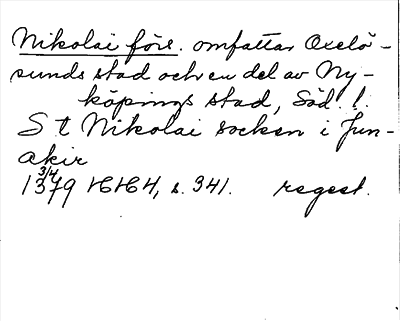 Nikolai förs. omfattar Oxelö-
sunds stad och en del av Ny-
köpings stad, Söd. l.
St Nikolai socken i Jun-
akir
3/4
1379 HHH, s. 341. regest.